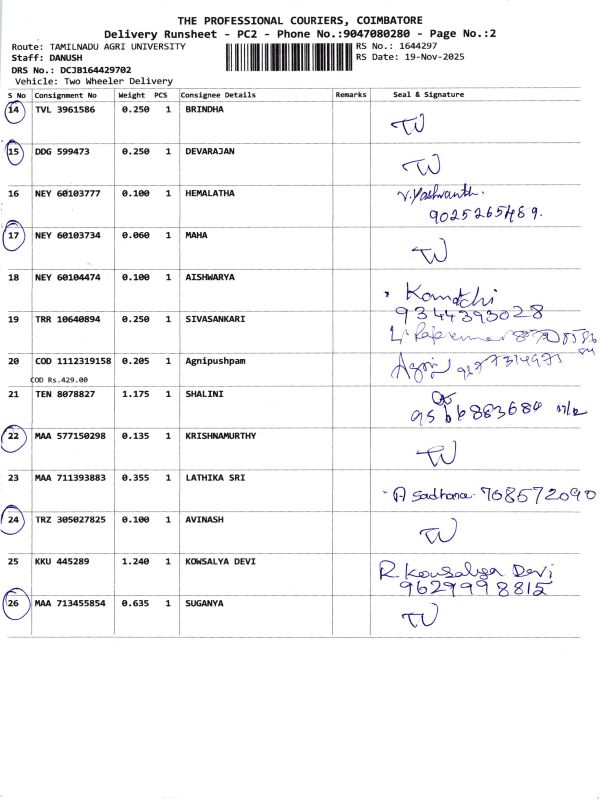 THE PROFESSIONAL COURIERS, COIMBATORE
Delivery Runsheet - PC2 - Phone No.:9047080280 - Page No.:2
Route: TAMILNADU AGRI UNIVERSITY RS No.: 1644297
Staff: DANUSH RS Date: 19-Nov-2025
DRS No.: DCJB164429702
Vehicle: Two Wheeler Delivery
S No Consignment No Weight PCS Consignee Details Remarks Seal & Signature
14 TVL 3961586 0.250 1 BRINDHA
15 DDG 599473 0.250 1 DEVARAJAN
16 NEY 60103777 0.100 1 HEMALATHA V. Yashwanth.
9025265489.
17 NEY 60103734 0.060 1 MAHA
18 NEY 60104474 0.100 1 AISHWARYA Kamatchi
9344393028
19 TRR 10640894 0.250 1 SIVASANKARI
20 COD 1112319158 0.205 1 Agnipushpam
COD Rs.429.00
21 TEN 8078827 1.175 1 SHALINI
9566883684
22 MAA 577150298 0.135 1 KRISHNAMURTHY
23 MAA 711393883 0.355 1 LATHIKA SRI A Sadhana 768572090
24 TRZ 305027825 0.100 1 AVINASH
25 KKU 445289 1.240 1 KOWSALYA DEVI R. Kowsalya Devi
9629998815
26 MAA 713455854 0.635 1 SUGANYA